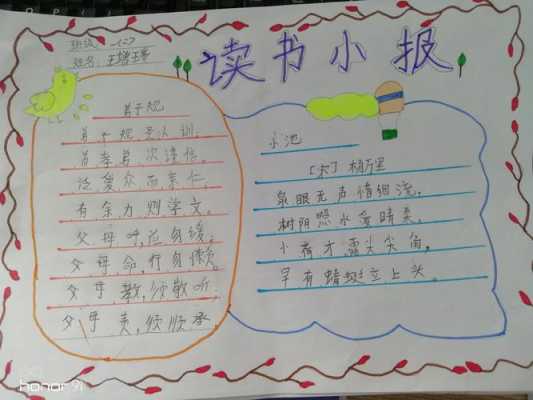 读书小报
班级
姓名：王
弟子规
弟子规，圣人训，
首孝弟，次谨信。
泛爱众，而亲仁，
有余力，则学文。
父母呼，应勿缓，
父母命，行勿懒。
父母教，须敬听，
父母责，须顺承
小池
[宋] 杨万里
泉眼无声惜细流，
树阴照水爱晴柔。
小荷才露尖尖角，
早有蜻蜓立上头。
honor 9i